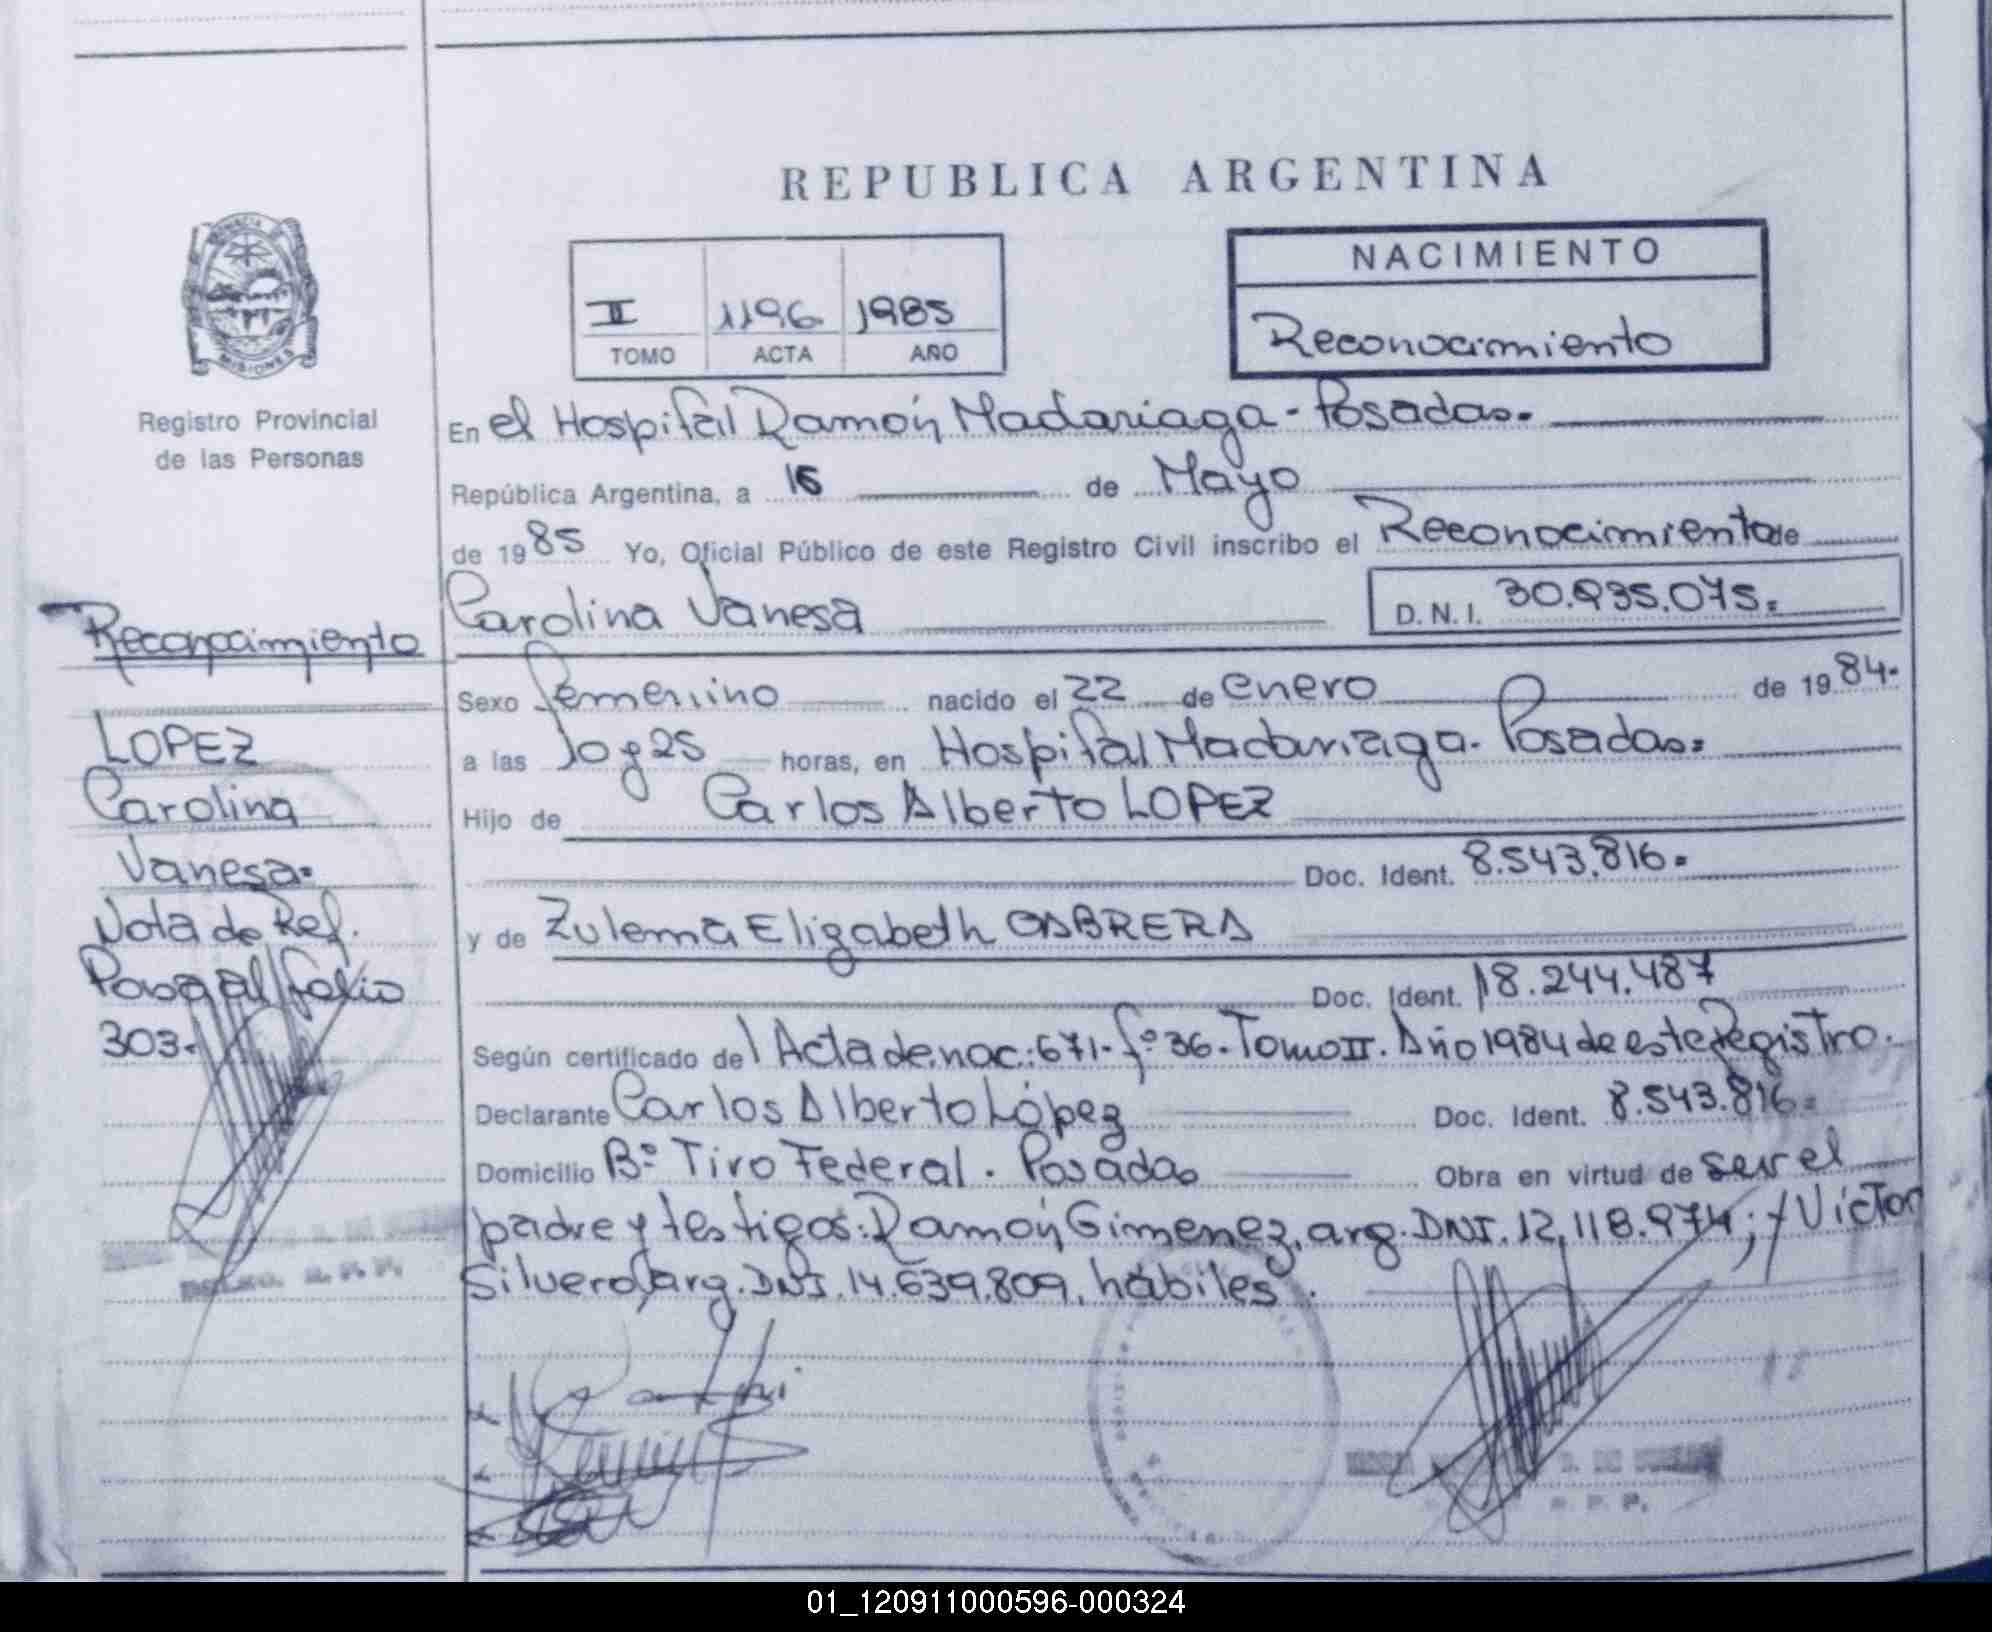 REPUBLICA ARGENTINA
NACIMIENTO
Reconocimiento
II 1196 1985
TOMO ACTA AÑO
MISIONES
Registro Provincial
de las Personas
En el Hospital Ramón Madariaga - Posadas.
República Argentina, a 16 de Mayo
de 1985 Yo, Oficial Público de este Registro Civil inscribo el Reconocimiento de
Carolina Vanesa D.N.I. 30.935.075.
Sexo femenino nacido el 22 de enero de 1984.
a las 10 y 25 horas, en Hospital Madariaga. Posadas.
Hijo de Carlos Alberto LOPEZ
Doc. Ident. 8.543.816.
y de Zulema Elizabeth CABRERA
Doc. Ident. 18.244.487
Según certificado del Acta de nac.: 671. fº 36. Tomo II. Año 1984 de este Registro.
Declarante Carlos Alberto López Doc. Ident. 8.543.816.
Domicilio Bº Tiro Federal. Posadas Obra en virtud de ser el
padre y testigos: Ramón Gimenez, arg. DNI. 12.118.974; y Victor
Silvero, arg. DNI. 14.639.809, hábiles.
Reconocimiento
LOPEZ
Carolina
Vanesa.
Nota de Ref.
Pasa al folio
303.
01_120911000596-000324